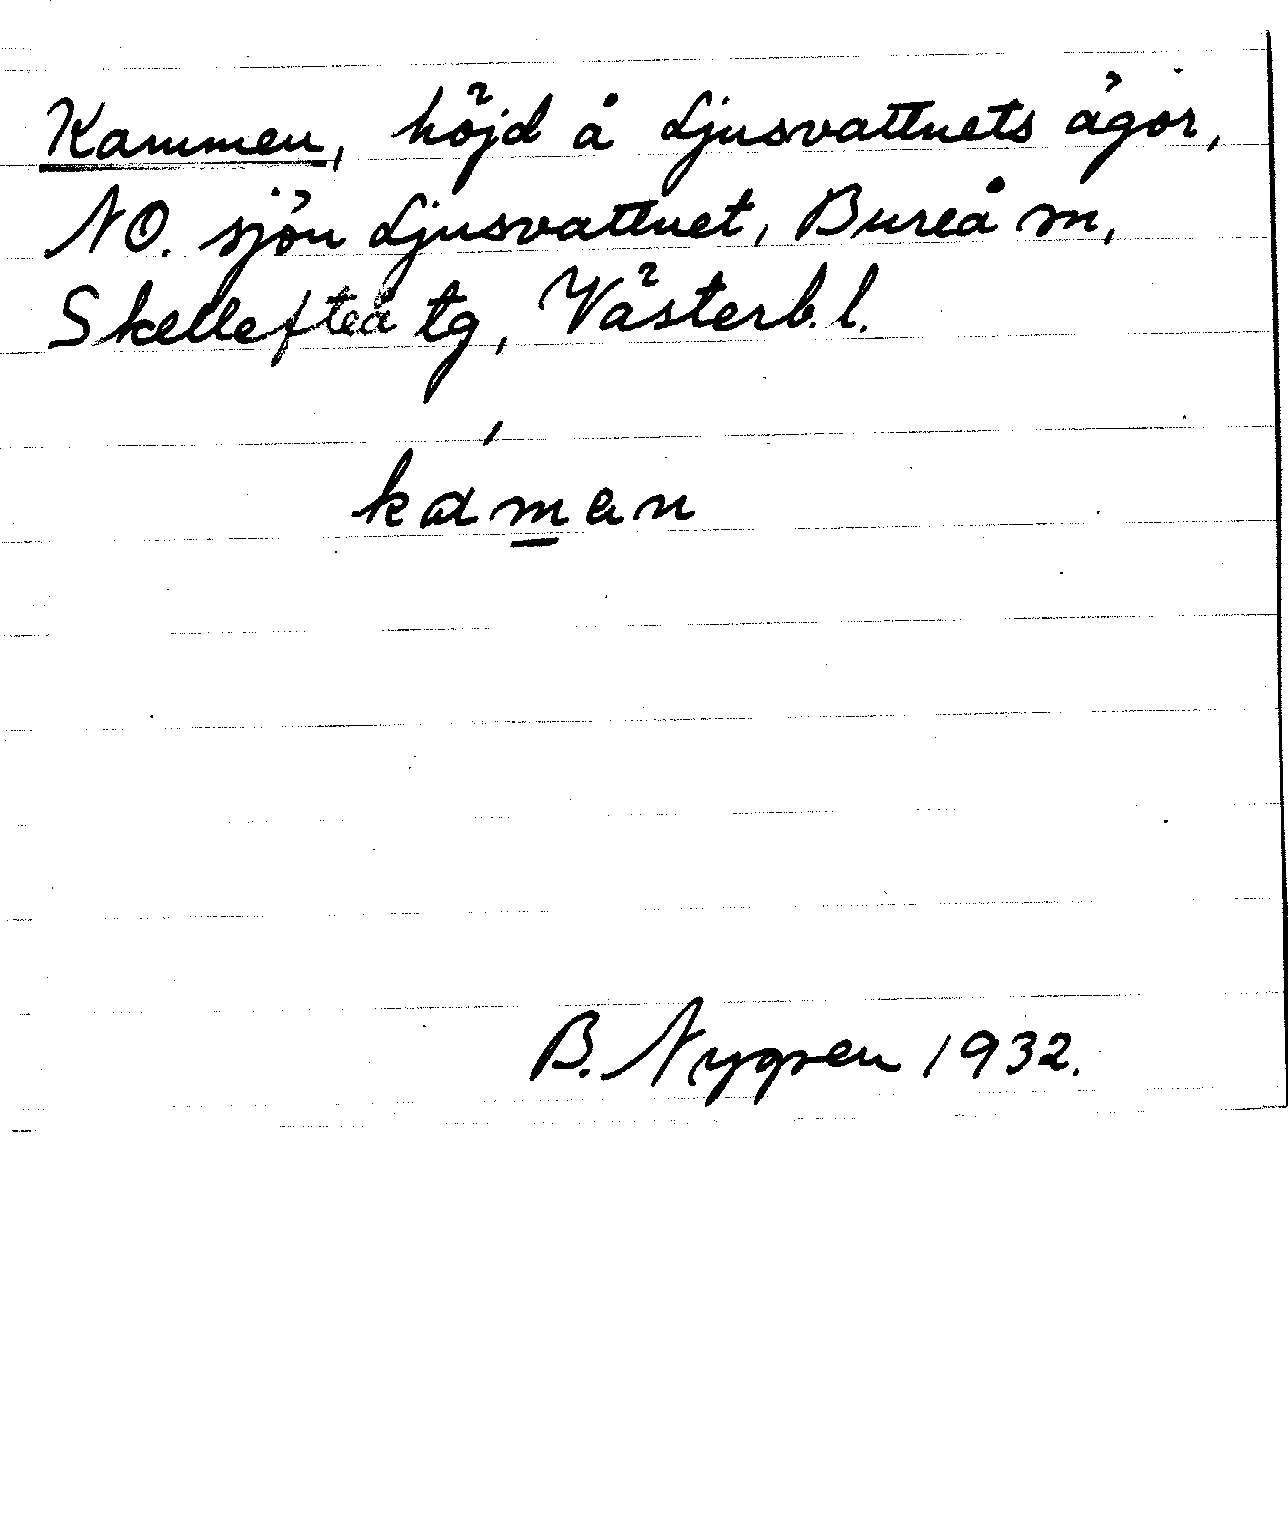 Kammen, höjd å Ljusvattnets ägor,
NO. sjön Ljusvattnet, Bureå sn,
Skellefteå tg, Västerb. l.
kamən
B. Nygren 1932.